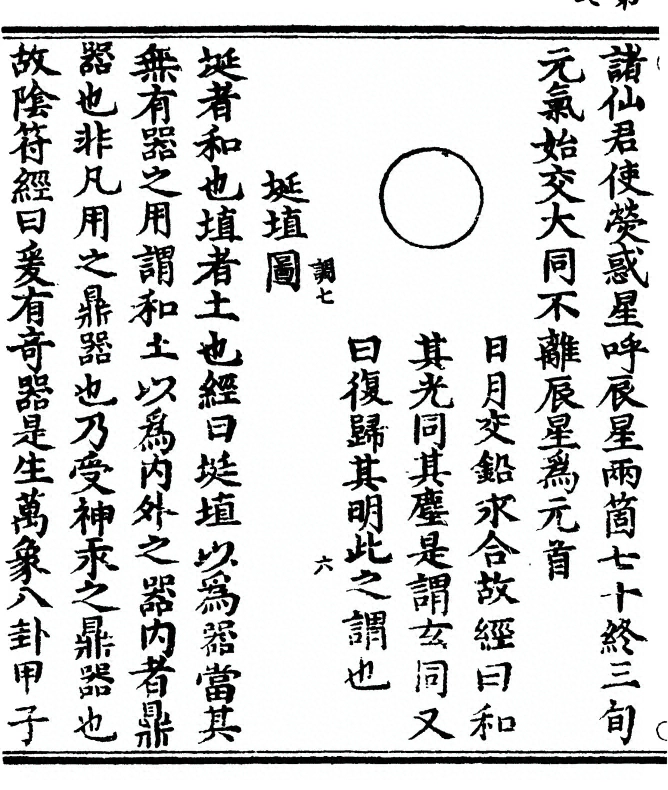 諸仙君使熒惑星呼辰星兩箇七十終三旬
元氣始交大同不離辰星爲元首
日月交鉛汞合故經曰和
其光同其塵是謂玄同又
曰復歸其明此之謂也
調七
六
埏埴圖
埏者和也埴者土也經曰埏埴以爲器當其
無有器之用謂和土以爲内外之器内者鼎
器也非凡用之鼎器也乃受神汞之鼎器也
故陰符經曰爰有奇器是生萬象八卦甲子